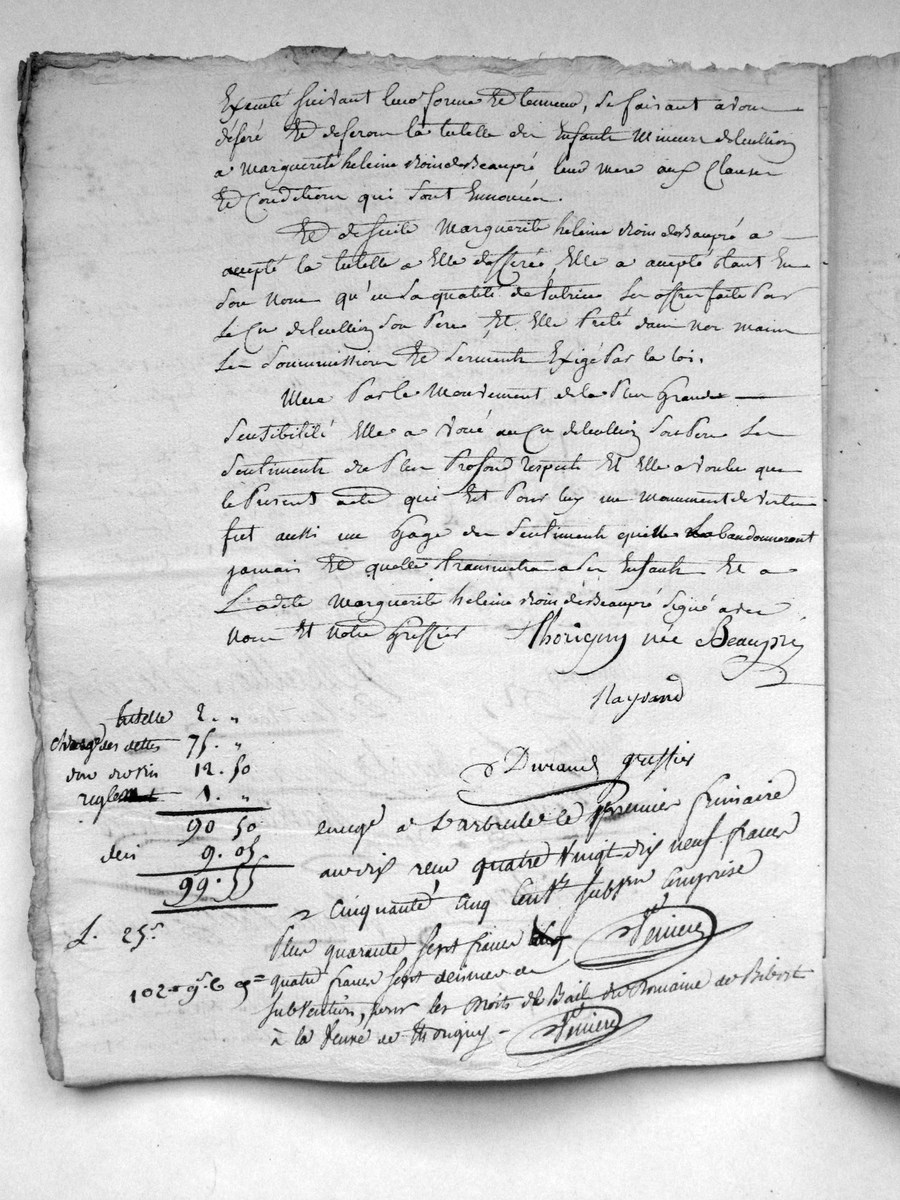 Executé suivant leur forme Et teneur, Ce faisant avons
deferé Et deferons la tutelle des Enfants Mineurs
a Marguerite heleine Beaupré leur Mere aux Clauses
Et Conditions qui sont Ennoncées.
Et de suite Marguerite heleine Beaupré a
accepté la tutelle a Elle defferée, Elle a accepté tant En
son Nom qu'en sa qualité de tutrice Les offres faite Par
Le Cn son Pere Et Elle Preté dans nos mains
Les Soummissions Et Serments Exigé Par la loi.
Mue Par le Mouvement de la Plus Grande
Sensibilité Elle a Voué au Cn son Pere Les
Sentiments du Plus Profond respects Et Elle a voulu que
le Present acte qui Est Pour luy un Monument de Vertu
fut aussi un Gage des Sentiments qu'elle abandonneront
jamais Et quelle transmettra a ses Enfants Et a
Ladite Marguerite heleine Beaupré Signé avec
Nous Et Notre Greffier Thorigny née Beaupré
Rayrand
tutelle 2. "
des dettes 75. "
12. 50
1. "
Durand greffier
90 50
9. 05
99. 55
enregé a Larbresle le premier frimaire
an dix reçu quatre Vingt dix neuf francs
cinquante cinq centes subvon comprise
L. 25r
Plus quarante sept francs
quatre francs sept decimes de
subvention, pour les droits de Bail du Domaine de Bibost
à la Veuve de Thorigny -